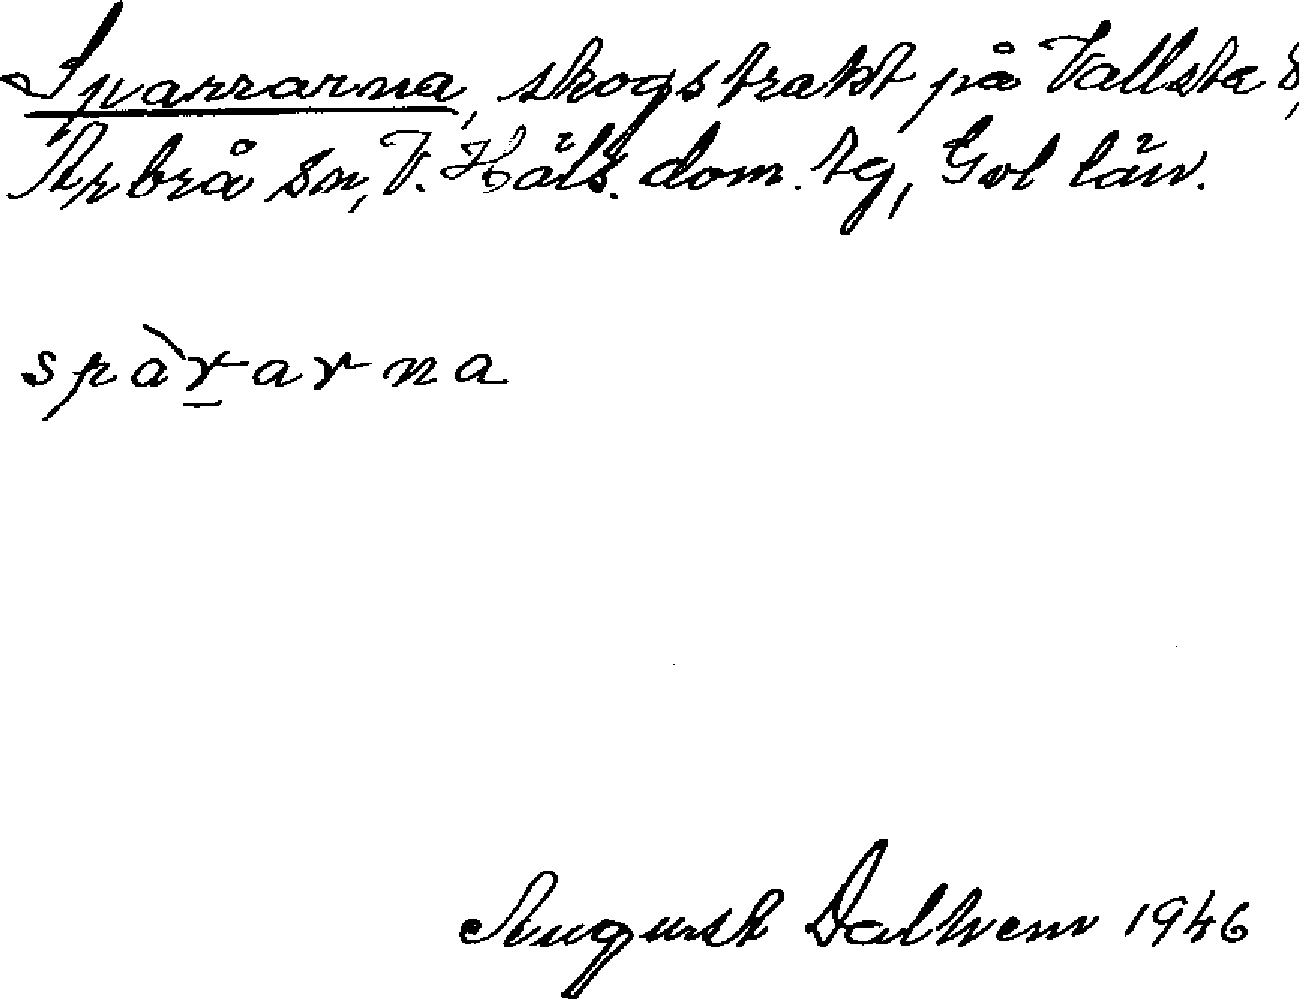 Sparrarna, skogstrakt på Vallsta
Arbrå sn, V. Häls. dom. tg, Gvl län.
spàrarna
August Dalhem 1946